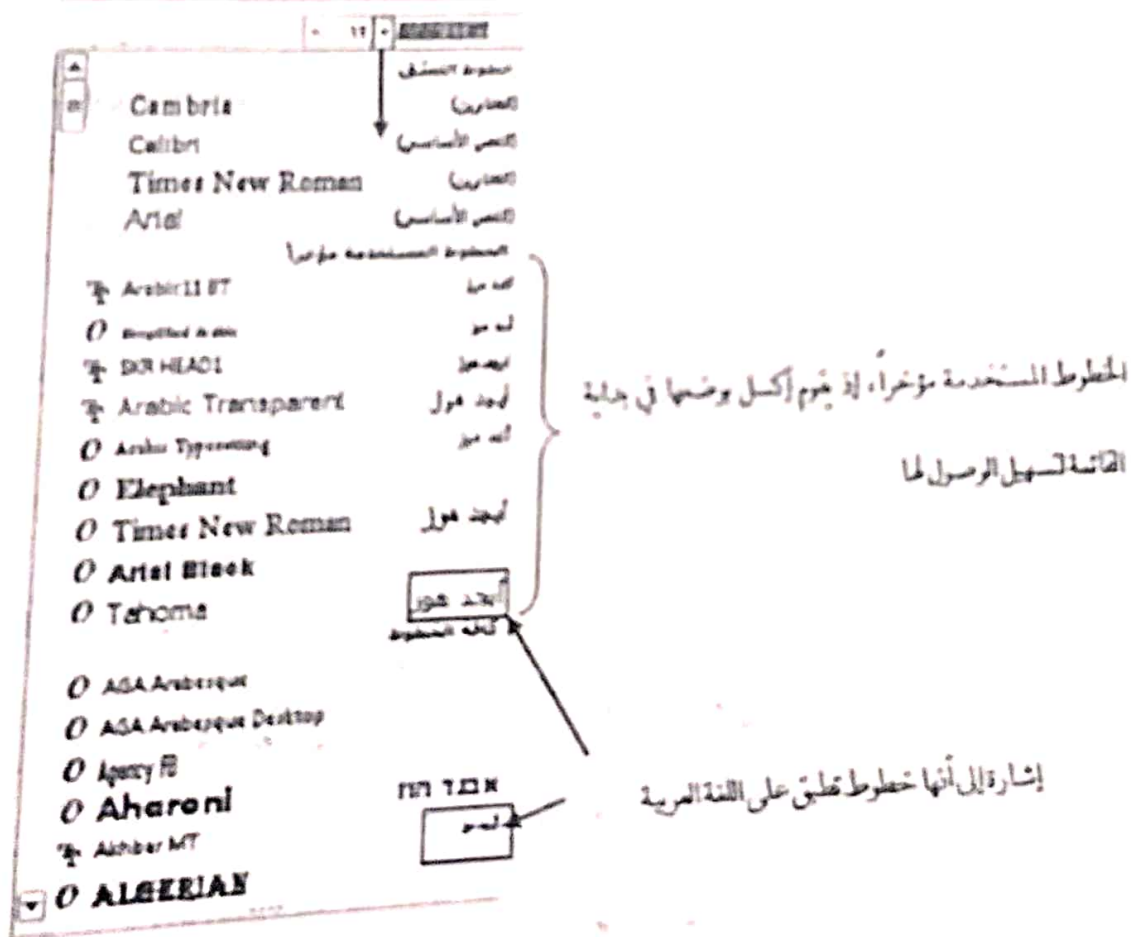 ١٢
خطوط النسق
Cambria (العناوين)
Calibri (النص الأساسي)
Times New Roman (العناوين)
Arial (النص الأساسي)
الخطوط المستخدمة مؤخراً
Arabic11 BT
Simplified Arabic
SKR HEAD1
Arabic Transparent أبجد هوز
Arabic Typesetting
Elephant
Times New Roman أبجد هوز
Arial Black
Tahoma أبجد هوز
كافة الخطوط
AGA Arabesque
AGA Arabesque Desktop
Agency FB
Aharoni אבגד הוז
Akhbar MT
ALGERIAN
الخطوط المستخدمة مؤخراً، إذ يقوم إكسل بوضعها في بداية
القائمة لتسهيل الوصول لها
إشارة إلى أنها خطوط تطبق على اللغة العربية